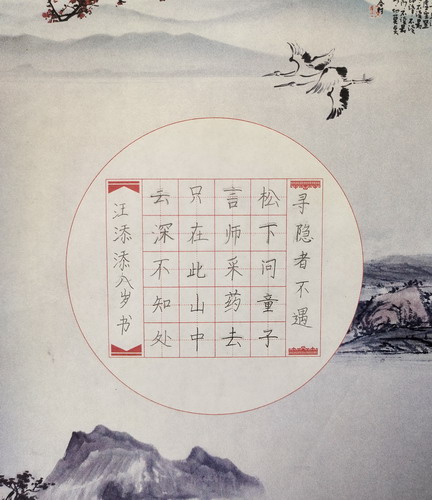 寻隐者不遇
松下问童子
言师采药去
只在此山中
云深不知处
汪添添八岁书